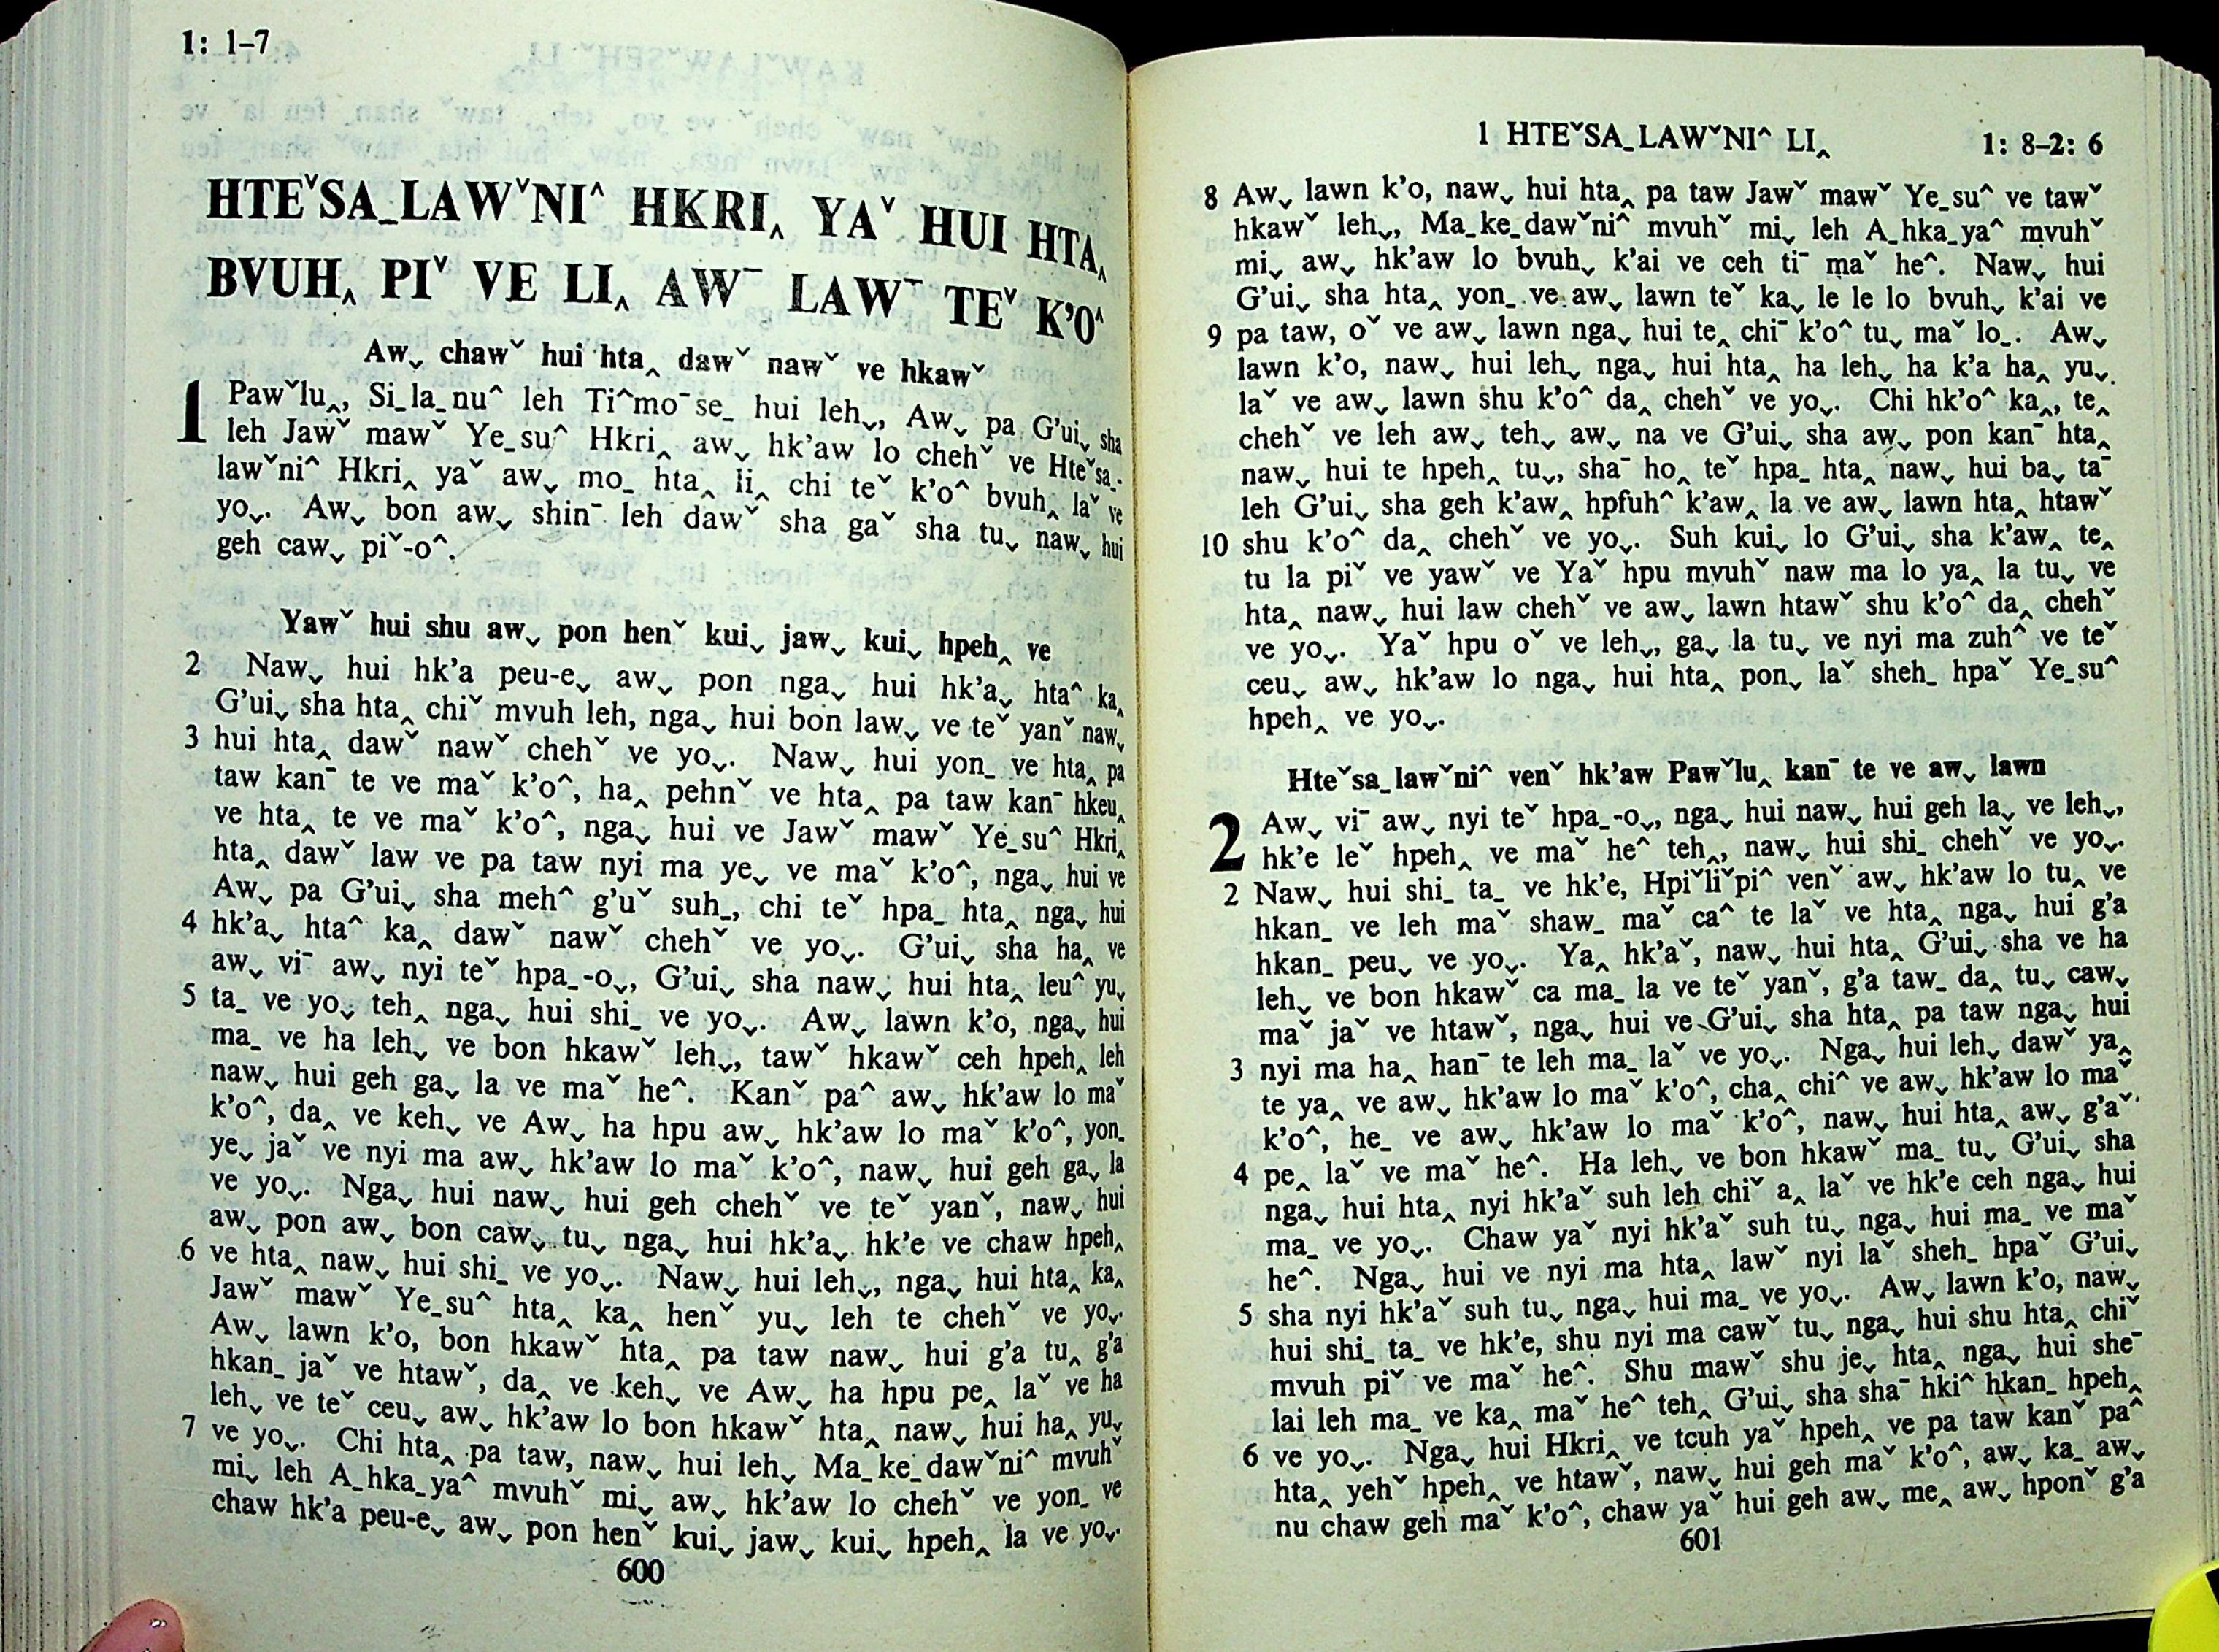 1: 1–7
HTEˇSA_LAWˇNI^ HKRI‸ YAˇ HUI HTA‸
BVUH‸ PIˇ VE LI‸ AW¯ LAW¯ TEˇ K'O^
Aw⌄ chawˇ hui hta‸ dawˇ nawˇ ve hkawˇ
1 Pawˇlu‸, Si_la_nu^ leh Ti^mo¯se_ hui leh⌄, Aw⌄ pa G'ui⌄ sha
leh Jawˇ mawˇ Ye_su^ Hkri‸ aw⌄ hk'aw lo chehˇ ve Hteˇsa_-
lawˇni^ Hkri‸ yaˇ aw⌄ mo_ hta‸ li‸ chi teˇ k'o^ bvuh‸ laˇ ve
yo⌄. Aw⌄ bon aw⌄ shin¯ leh dawˇ sha gaˇ sha tu⌄ naw⌄ hui
geh caw⌄ piˇ-o^.
Yawˇ hui shu aw⌄ pon henˇ kui⌄ jaw⌄ kui⌄ hpeh‸ ve
2 Naw⌄ hui hk'a peu-e⌄ aw⌄ pon nga⌄ hui hk'a⌄ hta^ ka‸
G'ui⌄ sha hta‸ chiˇ mvuh leh, nga⌄ hui bon law⌄ ve teˇ yanˇ naw⌄
3 hui hta‸ dawˇ nawˇ chehˇ ve yo⌄. Naw⌄ hui yon_ ve hta‸ pa
taw kan¯ te ve maˇ k'o^, ha‸ pehnˇ ve hta‸ pa taw kan¯ hkeu‸
ve hta‸ te ve maˇ k'o^, nga⌄ hui ve Jawˇ mawˇ Ye_su^ Hkri‸
hta‸ dawˇ law ve pa taw nyi ma ye⌄ ve maˇ k'o^, nga⌄ hui ve
Aw⌄ pa G'ui⌄ sha meh^ g'uˇ suh_, chi teˇ hpa_ hta‸ nga⌄ hui
4 hk'a⌄ hta^ ka‸ dawˇ nawˇ chehˇ ve yo⌄. G'ui⌄ sha ha‸ ve
aw⌄ vi¯ aw⌄ nyi teˇ hpa_-o⌄, G'ui⌄ sha naw⌄ hui hta‸ leu^ yu⌄
5 ta_ ve yo⌄ teh‸ nga⌄ hui shi_ ve yo⌄. Aw⌄ lawn k'o, nga⌄ hui
ma_ ve ha leh⌄ ve bon hkawˇ leh⌄, tawˇ hkawˇ ceh hpeh‸ leh
naw⌄ hui geh ga⌄ la ve maˇ he^. Kanˇ pa^ aw⌄ hk'aw lo maˇ
k'o^, da‸ ve keh⌄ ve Aw⌄ ha hpu aw⌄ hk'aw lo maˇ k'o^, yon_
ye⌄ jaˇ ve nyi ma aw⌄ hk'aw lo maˇ k'o^, naw⌄ hui geh ga⌄ la
ve yo⌄. Nga⌄ hui naw⌄ hui geh chehˇ ve teˇ yanˇ, naw⌄ hui
aw⌄ pon aw⌄ bon caw⌄ tu⌄ nga⌄ hui hk'a⌄ hk'e ve chaw hpeh‸
6 ve hta‸ naw⌄ hui shi_ ve yo⌄. Naw⌄ hui leh⌄, nga⌄ hui hta‸ ka‸
Jawˇ mawˇ Ye_su^ hta‸ ka‸ henˇ yu⌄ leh te chehˇ ve yo⌄.
Aw⌄ lawn k'o, bon hkawˇ hta‸ pa taw naw⌄ hui g'a tu‸ g'a
hkan_ jaˇ ve htawˇ, da‸ ve keh⌄ ve Aw⌄ ha hpu pe‸ laˇ ve ha
leh⌄ ve teˇ ceu⌄ aw⌄ hk'aw lo bon hkawˇ hta‸ naw⌄ hui ha‸ yu⌄
7 ve yo⌄. Chi hta‸ pa taw, naw⌄ hui leh⌄ Ma_ke_dawˇni^ mvuhˇ
mi⌄ leh A_hka_ya^ mvuhˇ mi⌄ aw⌄ hk'aw lo chehˇ ve yon_ ve
chaw hk'a peu-e⌄ aw⌄ pon henˇ kui⌄ jaw⌄ kui⌄ hpeh‸ la ve yo⌄.
600
1 HTEˇSA_LAWˇNI^ LI‸ 1: 8–2: 6
8 Aw⌄ lawn k'o, naw⌄ hui hta‸ pa taw Jawˇ mawˇ Ye_su^ ve tawˇ
hkawˇ leh⌄, Ma_ke_dawˇni^ mvuhˇ mi⌄ leh A_hka_ya^ mvuhˇ
mi⌄ aw⌄ hk'aw lo bvuh⌄ k'ai ve ceh ti¯ maˇ he^. Naw⌄ hui
G'ui⌄ sha hta‸ yon_ ve aw⌄ lawn teˇ ka⌄ le le lo bvuh⌄ k'ai ve
9 pa taw, oˇ ve aw⌄ lawn nga⌄ hui te‸ chi¯ k'o^ tu⌄ maˇ lo_. Aw⌄
lawn k'o, naw⌄ hui leh⌄ nga⌄ hui hta‸ ha leh⌄ ha k'a ha‸ yu⌄
laˇ ve aw⌄ lawn shu k'o^ da‸ chehˇ ve yo⌄. Chi hk'o^ ka‸, te‸
chehˇ ve leh aw⌄ teh⌄ aw⌄ na ve G'ui⌄ sha aw⌄ pon kan¯ hta‸
naw⌄ hui te hpeh‸ tu⌄, sha¯ ho‸ teˇ hpa_ hta‸ naw⌄ hui ba⌄ ta¯
leh G'ui⌄ sha geh k'aw‸ hpfuh^ k'aw‸ la ve aw⌄ lawn hta‸ htawˇ
10 shu k'o^ da‸ chehˇ ve yo⌄. Suh kui⌄ lo G'ui⌄ sha k'aw‸ te‸
tu la piˇ ve yawˇ ve Yaˇ hpu mvuhˇ naw ma lo ya‸ la tu⌄ ve
hta‸ naw⌄ hui law chehˇ ve aw⌄ lawn htawˇ shu k'o^ da‸ chehˇ
ve yo⌄. Yaˇ hpu oˇ ve leh⌄, ga⌄ la tu⌄ ve nyi ma zuh^ ve teˇ
ceu⌄ aw⌄ hk'aw lo nga⌄ hui hta‸ pon⌄ laˇ sheh_ hpaˇ Ye_su^
hpeh‸ ve yo⌄.
Hteˇsa_lawˇni^ venˇ hk'aw Pawˇlu‸ kan¯ te ve aw⌄ lawn
2 Aw⌄ vi¯ aw⌄ nyi teˇ hpa_-o⌄, nga⌄ hui naw⌄ hui geh la⌄ ve leh⌄,
hk'e leˇ hpeh‸ ve maˇ he^ teh‸, naw⌄ hui shi_ chehˇ ve yo⌄.
2 Naw⌄ hui shi_ ta_ ve hk'e, Hpiˇliˇpi^ venˇ aw⌄ hk'aw lo tu‸ ve
hkan_ ve leh maˇ shaw_ maˇ ca^ te laˇ ve hta‸ nga⌄ hui g'a
hkan_ peu⌄ ve yo⌄. Ya‸ hk'aˇ, naw⌄ hui hta‸ G'ui⌄ sha ve ha
leh⌄ ve bon hkawˇ ca ma_ la ve teˇ yanˇ, g'a taw_ da‸ tu⌄ caw⌄
maˇ jaˇ ve htawˇ, nga⌄ hui ve G'ui⌄ sha hta‸ pa taw nga⌄ hui
3 nyi ma ha‸ han¯ te leh ma_ laˇ ve yo⌄. Nga⌄ hui leh⌄ dawˇ ya‸
te ya‸ ve aw⌄ hk'aw lo maˇ k'o^, cha‸ chi^ ve aw⌄ hk'aw lo maˇ
k'o^, he_ ve aw⌄ hk'aw lo maˇ k'o^, naw⌄ hui hta‸ aw⌄ g'aˇ
4 pe‸ laˇ ve maˇ he^. Ha leh⌄ ve bon hkawˇ ma_ tu⌄ G'ui⌄ sha
nga⌄ hui hta‸ nyi hk'aˇ suh leh chiˇ a‸ laˇ ve hk'e ceh nga⌄ hui
ma_ ve yo⌄. Chaw yaˇ nyi hk'aˇ suh tu⌄ nga⌄ hui ma_ ve maˇ
he^. Nga⌄ hui ve nyi ma hta‸ lawˇ nyi laˇ sheh_ hpaˇ G'ui⌄
5 sha nyi hk'aˇ suh tu⌄ nga⌄ hui ma_ ve yo⌄. Aw⌄ lawn k'o, naw⌄
hui shi_ ta_ ve hk'e, shu nyi ma cawˇ tu⌄ nga⌄ hui shu hta‸ chiˇ
mvuh piˇ ve maˇ he^. Shu mawˇ shu je⌄ hta‸ nga⌄ hui she¯
lai leh ma_ ve ka‸ maˇ he^ teh‸ G'ui⌄ sha sha¯ hki^ hkan_ hpeh‸
6 ve yo⌄. Nga⌄ hui Hkri‸ ve tcuh yaˇ hpeh‸ ve pa taw kanˇ pa^
hta‸ yehˇ hpeh‸ ve htawˇ, naw⌄ hui geh maˇ k'o^, aw⌄ ka_ aw⌄
nu chaw geh maˇ k'o^, chaw yaˇ hui geh aw⌄ me‸ aw⌄ hponˇ g'a
601